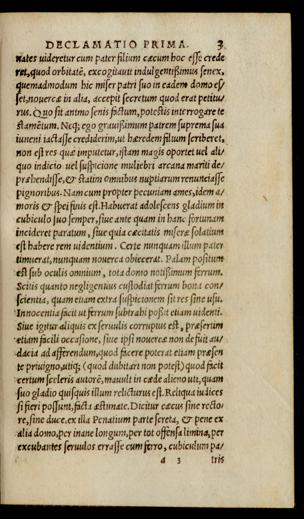 DECLAMATIO PRIMA. 3
nates uideretur cum pater filium cæcum hoc esse crede
ret, quod orbitatē, excogitauit indulgentißimus senex,
quemadmodum hic miser patri suo in eadem domo es/
set, nouercæ in alia, accepit secretum quod erat petitu/
rus. Quo sit animo senis factum, potestis interrogare te
stamētum. Neq; ego grauißimum patrem suprema sua
iuueni iactasse crediderim, ut hæredem filium scriberet,
non est res quæ imputetur, istam magis oportet uel ali/
quo indicio uel suspicione muliebri arcana mariti de/
præhendisse, & statim omnibus nuptiarum renunciasse
pignoribus. Nam cum propter pecuniam ames, idem a/
moris & spei finis est. Habuerat adolescens gladium in
cubiculo suo semper, siue ante quam in hanc fortunam
incideret paratum, siue quia cæcitatis miseræ solatium
est habere rem uidentium. Certe nunquam illum pater
timuerat, nunquam nouerca obiecerat. Palam positum
est sub oculis omnium, tota domo notißimum ferrum.
Scitis quanto negligentius custodiat ferrum bona con/
scientia, quam etiam extra suspicionem sit res sine usu.
Innocentia facit ut ferrum subtrahi poßit etiam uidenti.
Siue igitur aliquis ex seruulis corruptus est, præsertim
etiam facili occasione, siue ipsi nouercæ non defuit au/
dacia ad afferendum, quod facere poterat etiam præsen
te priuigno, utiq; (quod dubitari non potest) quod facit
certum sceleris autorē, mauult in cæde alieno uti, quam
suo gladio quisquis illum relicturus est. Reliqua iudices
si fieri possunt, facta æstimate. Dicitur cæcus sine recto/
re, sine duce, ex illa Penatium parte secreta, & pene ex
alia domo, per inane longum, per tot offensa limina, per
excubantes seruulos errasse cum ferro, cubiculum pa/
a 3 tris